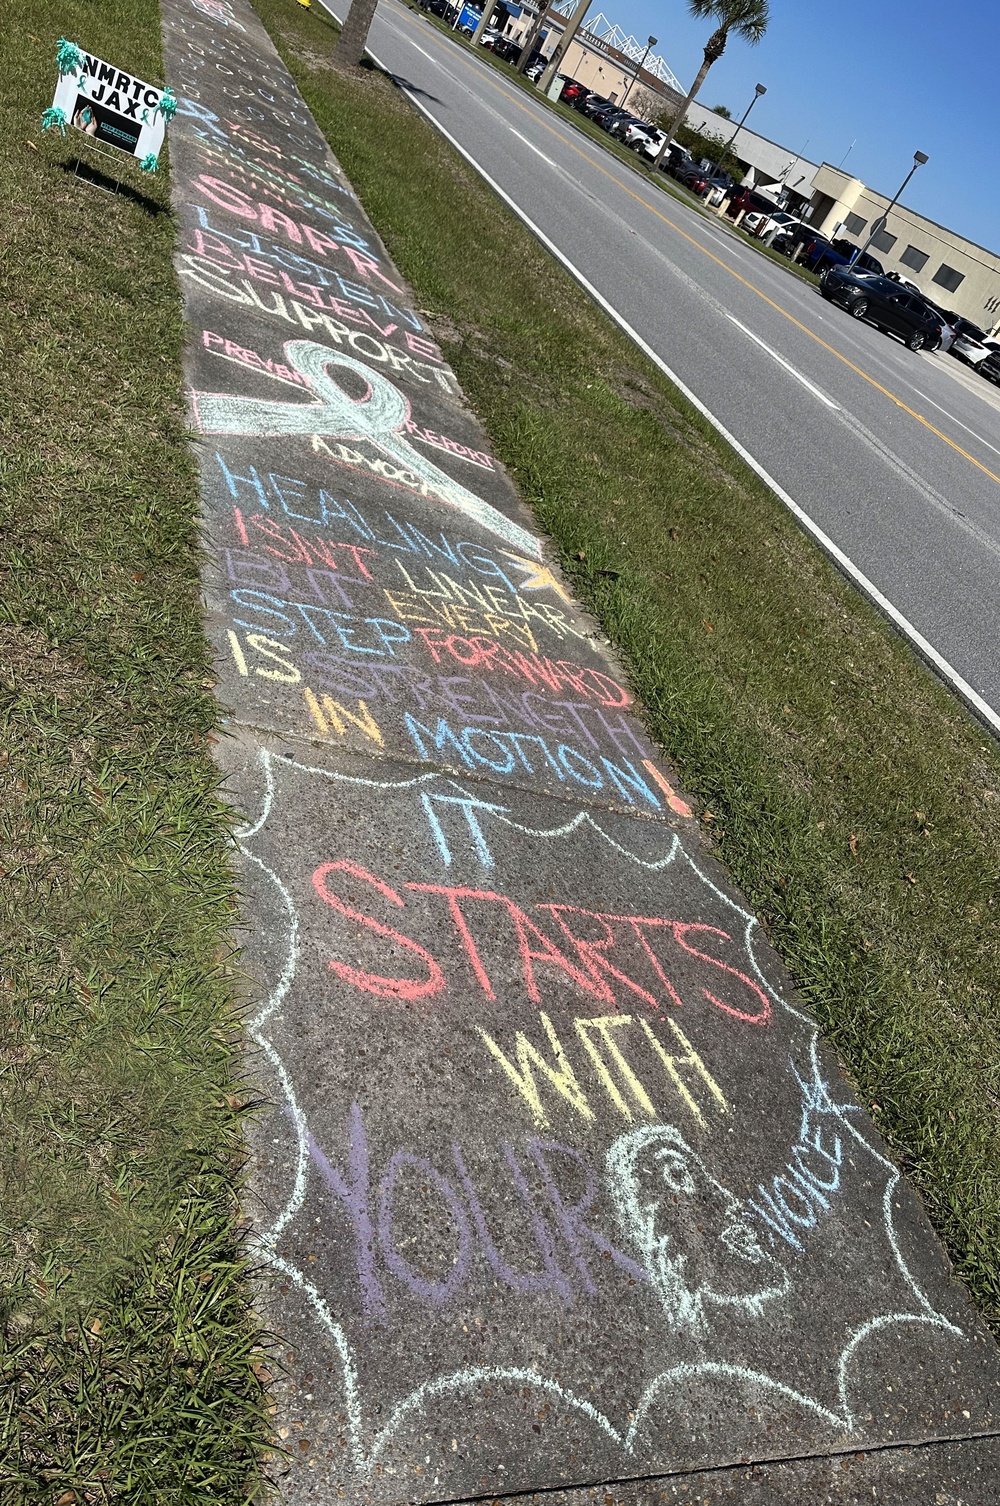 NMRTC
JAX
SAPR
LISTEN
BELIEVE
SUPPORT
PREVENT
REPORT
ADVOCATE
HEALING
ISN'T LINEAR,
BUT EVERY
STEP FORWARD
IS STRENGTH
IN MOTION!
IT
STARTS
WITH
YOUR
VOICE